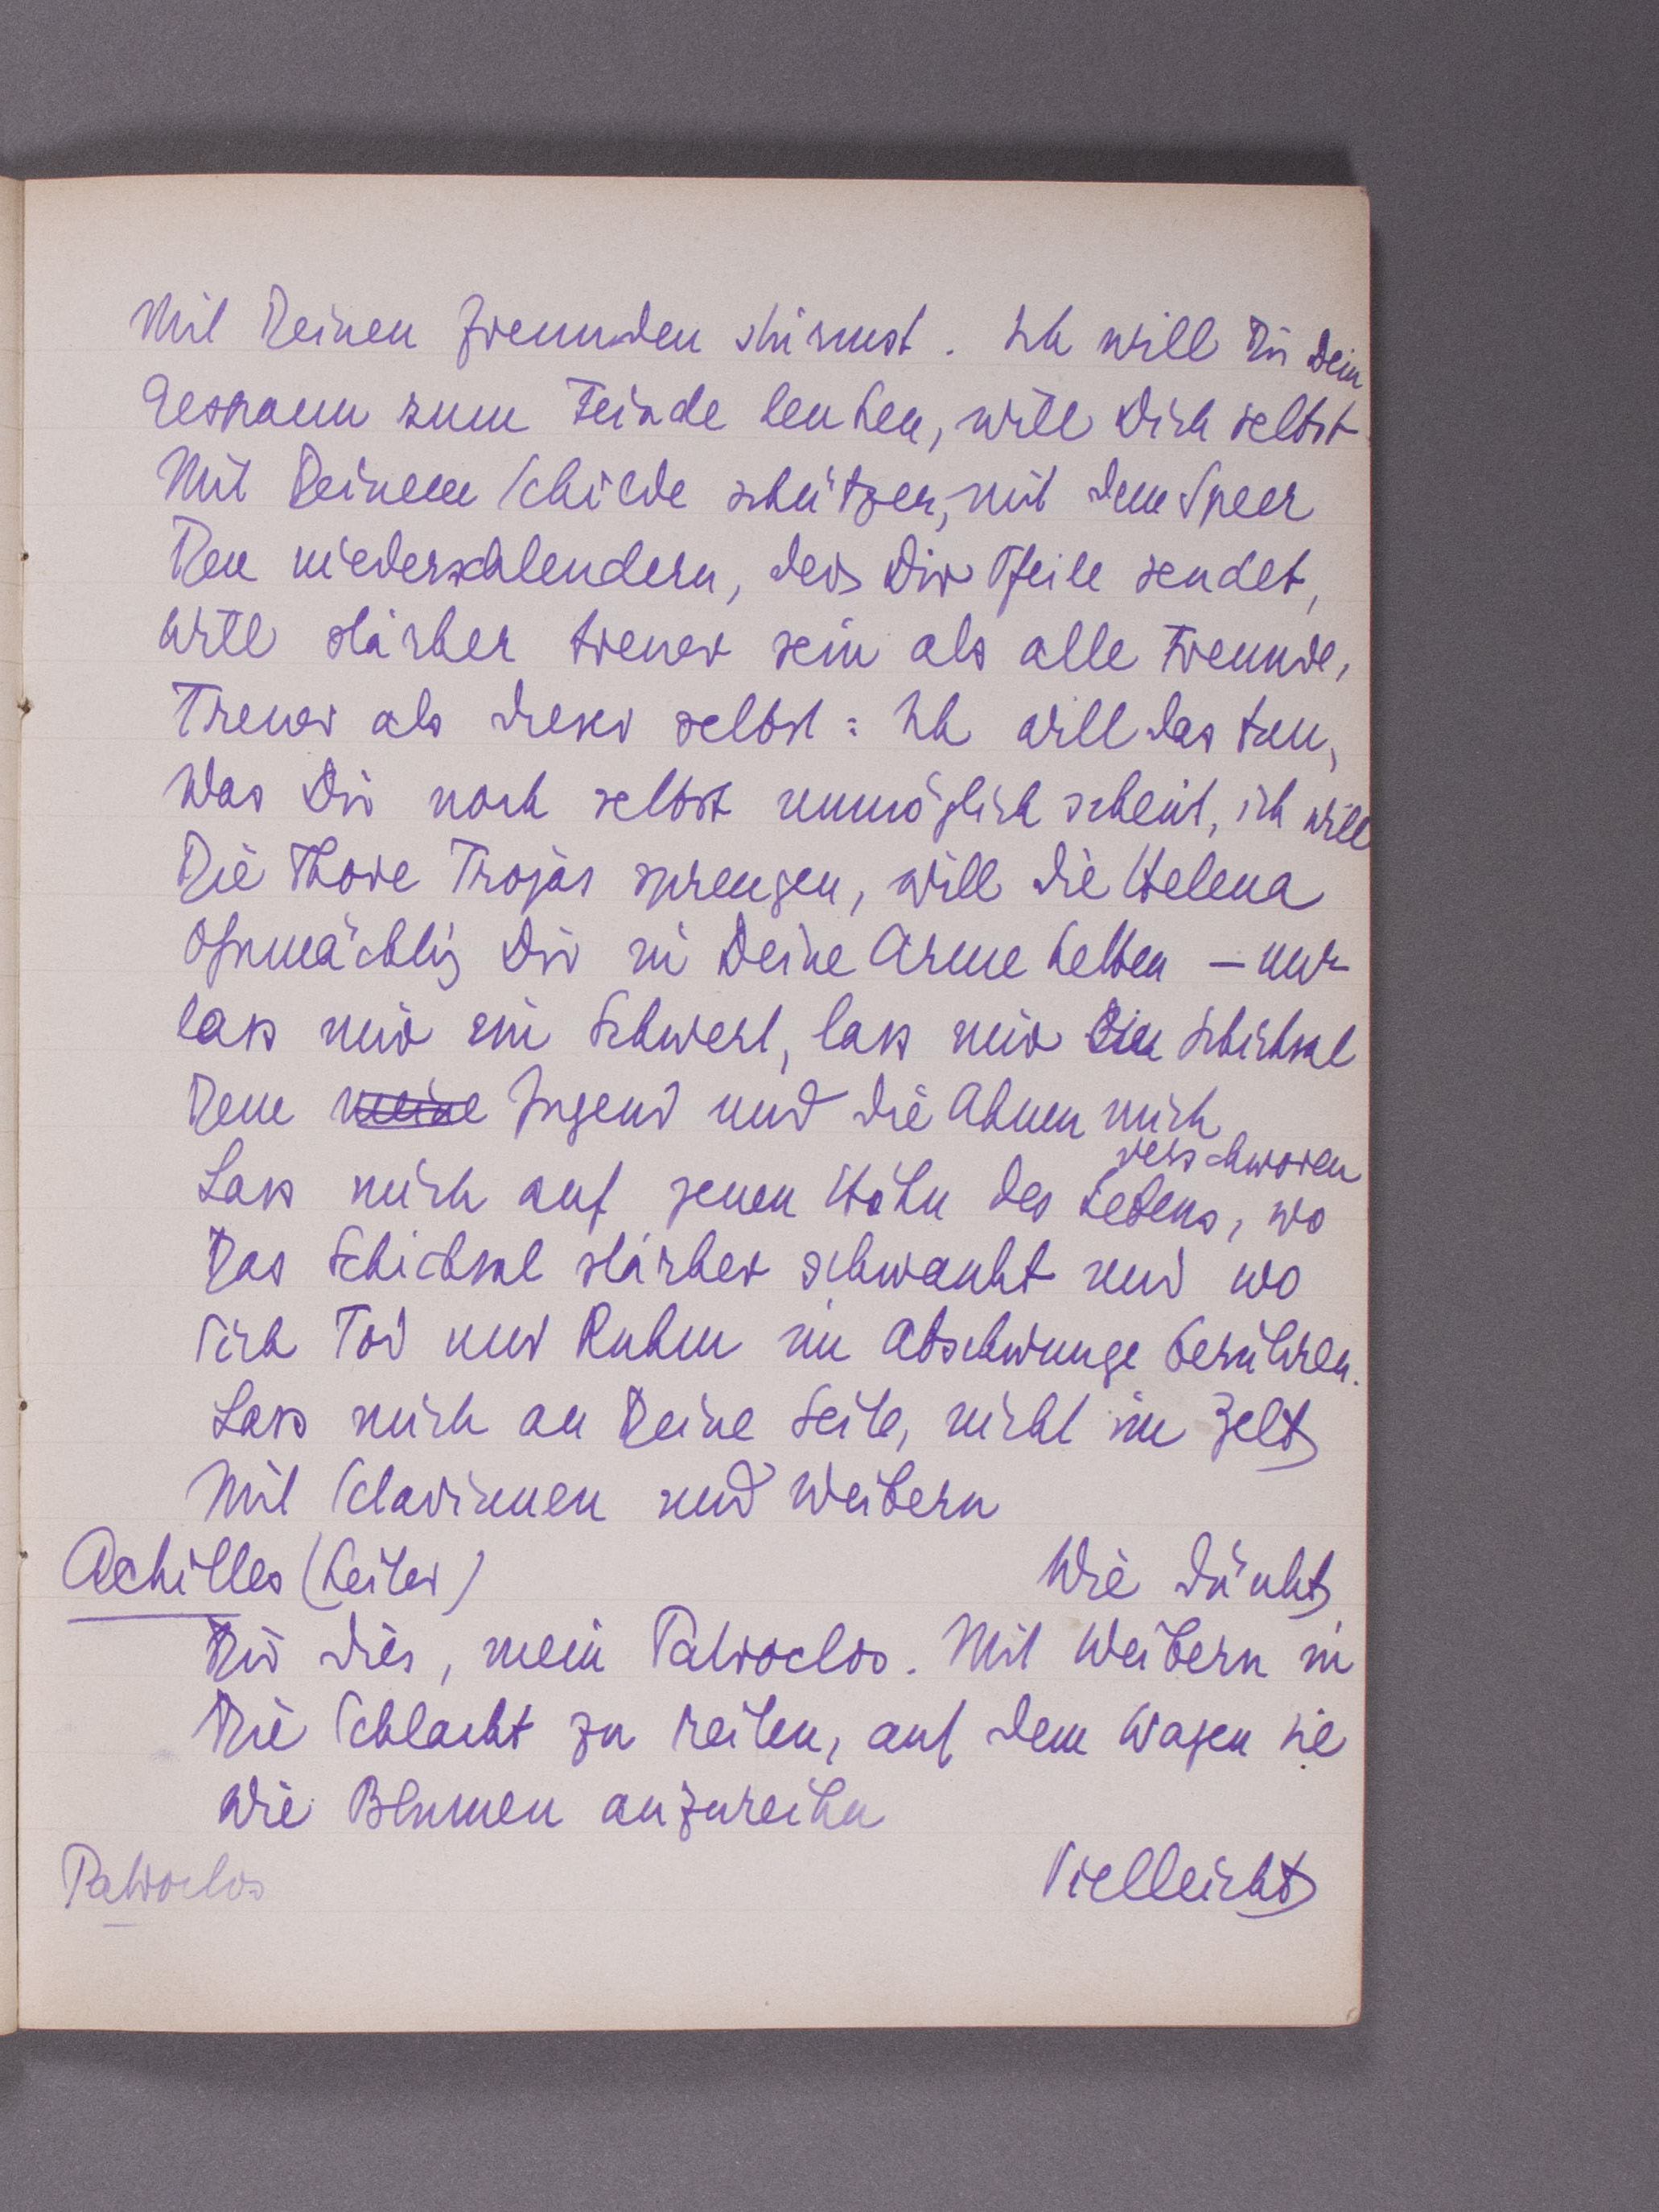 Mit Deinen Freunden stürmst. Ich will Dir Dein
Gespann zum Feinde lenken, will Dich selbst
Mit Deinem Schilde schützen, mit dem Speer
Den niederschlendern, der Dir Pfeile sendet,
Will stärker treuer sein als alle Freunde,
Treuer als dieser selbst: Ich will das tun,
Was Dir noch selbst unmöglich scheint, ich will
Die Thore Trojas sprengen, will die Helena
Ohnmächtig Dir in Deine Arme betten – nur
lass mir ein Schwert, lass mir ein Schicksal
Dem meine Jugend und die Ahnen mich
verschworen
Lass mich auf jenen Höhn des Lebens, wo
Das Schicksal stärker schwankt und wo
Sich Tod und Ruhm im Abschwunge berühren.
Lass mich an Deine Seite, nicht im Zelt
Mit Sclavinnen und Weibern
Achilles (heiter) Wie dünkt
Dir dies, mein Patroclos. Mit Weibern in
Die Schlacht zu reiten, auf dem Wagen sie
Wie Blumen anzureihn
Patroclos Vielleicht